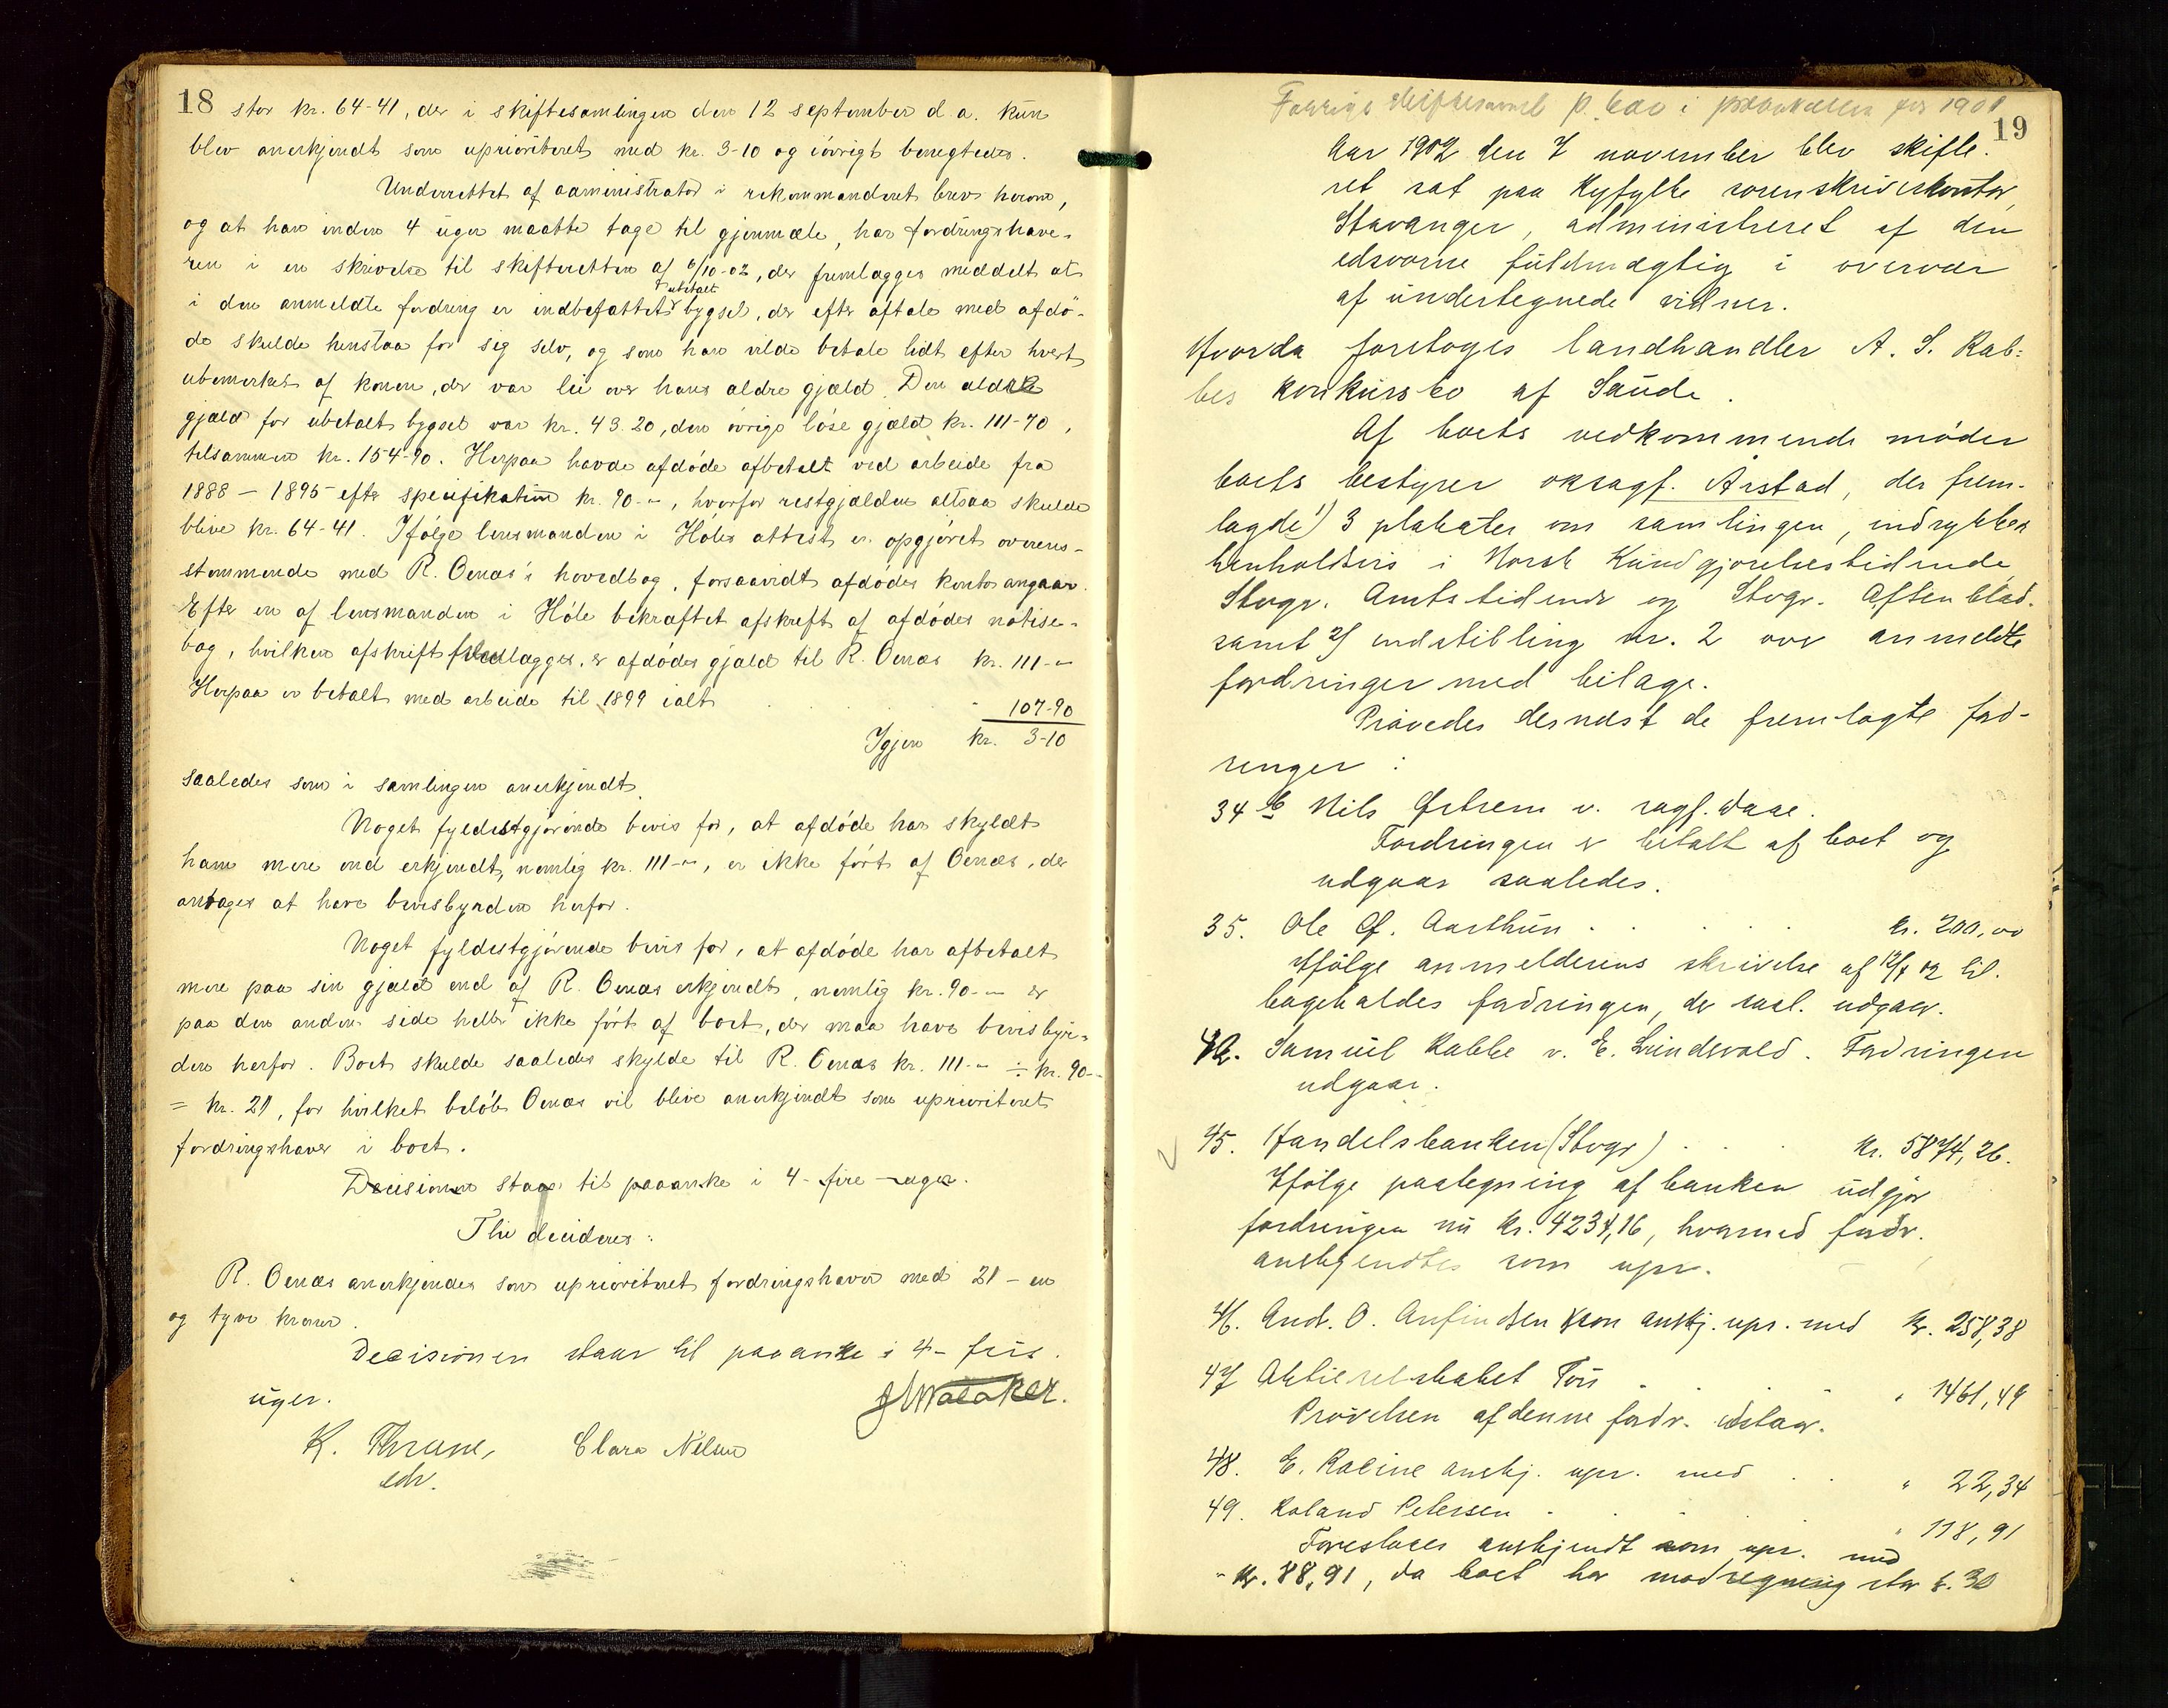 18 stor kr. 64-41, der i skiftesamlingen den 12 september d.a. kun
blev anerkjendt som uprioriteret med kr. 3-10 og iøvrigt benegtedes.
Underrettet af administrator i rekommanderet brev herom,
og at han inden 4 uger maatte tage til gjenmæle, har fordringshave-
ren i en skrivelse til skifteretten af 6/10-02, der fremlægges meddelt at
ubetalt
i den anmeldte fordring er indbefattet bygsel, der efter aftale med afdø-
de skulde henstaa for sig selv, og som han vilde betale lidt efter hvert
ubemerket af konen, der var lei over hans ældre gjæld. Den ældre
gjæld for ubetalt bygsel var kr. 43.20, den øvrige løse gjæld kr. 111-70,
tilsammen kr. 154-90. Herpaa havde afdøde afbetalt ved arbeide fra
1888 - 1895 efter specifikation kr. 90.-", hvorfor restgjælden altsaa skulde
blive kr. 64-41. Ifølge lensmanden i Høles attest er opgjøret overens-
stemmende med R. Oenæs's hovedbog, forsaavidt afdødes konto angaar.
Efter en af lensmanden i Høle bekræftet afskrift af afdødes notise-
bog, hvilken afskrift fremlægges, er afdødes gjæld til R. Oenæs kr. 111-"
Herpaa er betalt med arbeide til 1899 ialt . . . . 107-90
Igjen kr. 3-10
saaledes som i samlingen anerkjendt.
Noget fyldestgjørende bevis for, at afdøde har skyldt
ham mere end erkjendt, nemlig kr. 111-", er ikke ført af Oenæs, der
antages at have bevisbyrden herfor.
Noget fyldestgjørende bevis for, at afdøde har afbetalt
mere paa sin gjæld end af R. Oenæs erkjendt, nemlig kr. 90-" er
paa den anden side heller ikke ført af boet, der maa have bevisbyr-
den herfor. Boet skulde saaledes skylde til R. Oenæs kr. 111-" ÷ kr. 90--
= kr. 21, for hvilket beløb Oenæs vil blive anerkjendt som uprioriteret
fordringshaver i boet.
Decisionen staar til paaanke i 4 - fire - uger.
Thi decideres:
R. Oenæs anerkjendes som uprioriteret fordringshaver med 21 - en
og tyve kroner.
Decisionen staar til paaanke i 4 - fire
uger.
K. Thrane, Clara Nilsen
edv.
19
Aar 1902 den 7 november blev skifte-
ret sat paa Ryfylke sorenskriverkontor,
Stavanger, administreret af den
edsvorne fuldmægtig i overvær
af undertegnede vidner.
Hvorda foretoges landhandler A. S. Rab-
bes konkursbo af Saude.
Af boets vedkommende møder
boets bestyrer oksagf. Årstad, der frem-
lagde 1) 3 plakater om samlingen, indrykket
henholdsvis i Norsk Kundgjørelsestidende,
Stvgr. Amtstidende og Stvgr. Aftenblad.
samt 2) indstilling nr. 2 over anmeldte
fordringer med bilage.
Prøvedes dernæst de fremlagte ford-
ringer:
34 b Nils Østrem v. sagf. Daae.
Fordringen er betalt af boet og
udgaar saaledes.
35. Ole G. Aarthun . . . . kr. 200,00
Ifølge anmelderens skrivelse af til-
bageholdes fordringen, der saal. udgaar.
42. Samuel Rabbe v. E. Lundsvold. Fordringen
udgaar.
45. Handelsbanken (Stvgr) . . . kr. 5874,26.
Ifølge paategning af banken udgjør
fordringen nu kr. 4234,16, hvormed fordr.
anerkjendtes som upr.
46. And. O. Anfindsen som anerkj. upr. med kr. 258,38
47 Aktieselskabet Tou . . . " 1461,49
Prøvelsen af denne fordr. udstaar.
48. E. Racine anerkj. upr. med . . " 22,34
49. Roland Petersen . . . " 118,91
Foreslaaes anerkjendt som upr. med
kr. 88,91, da boet har modregning stor k. 30